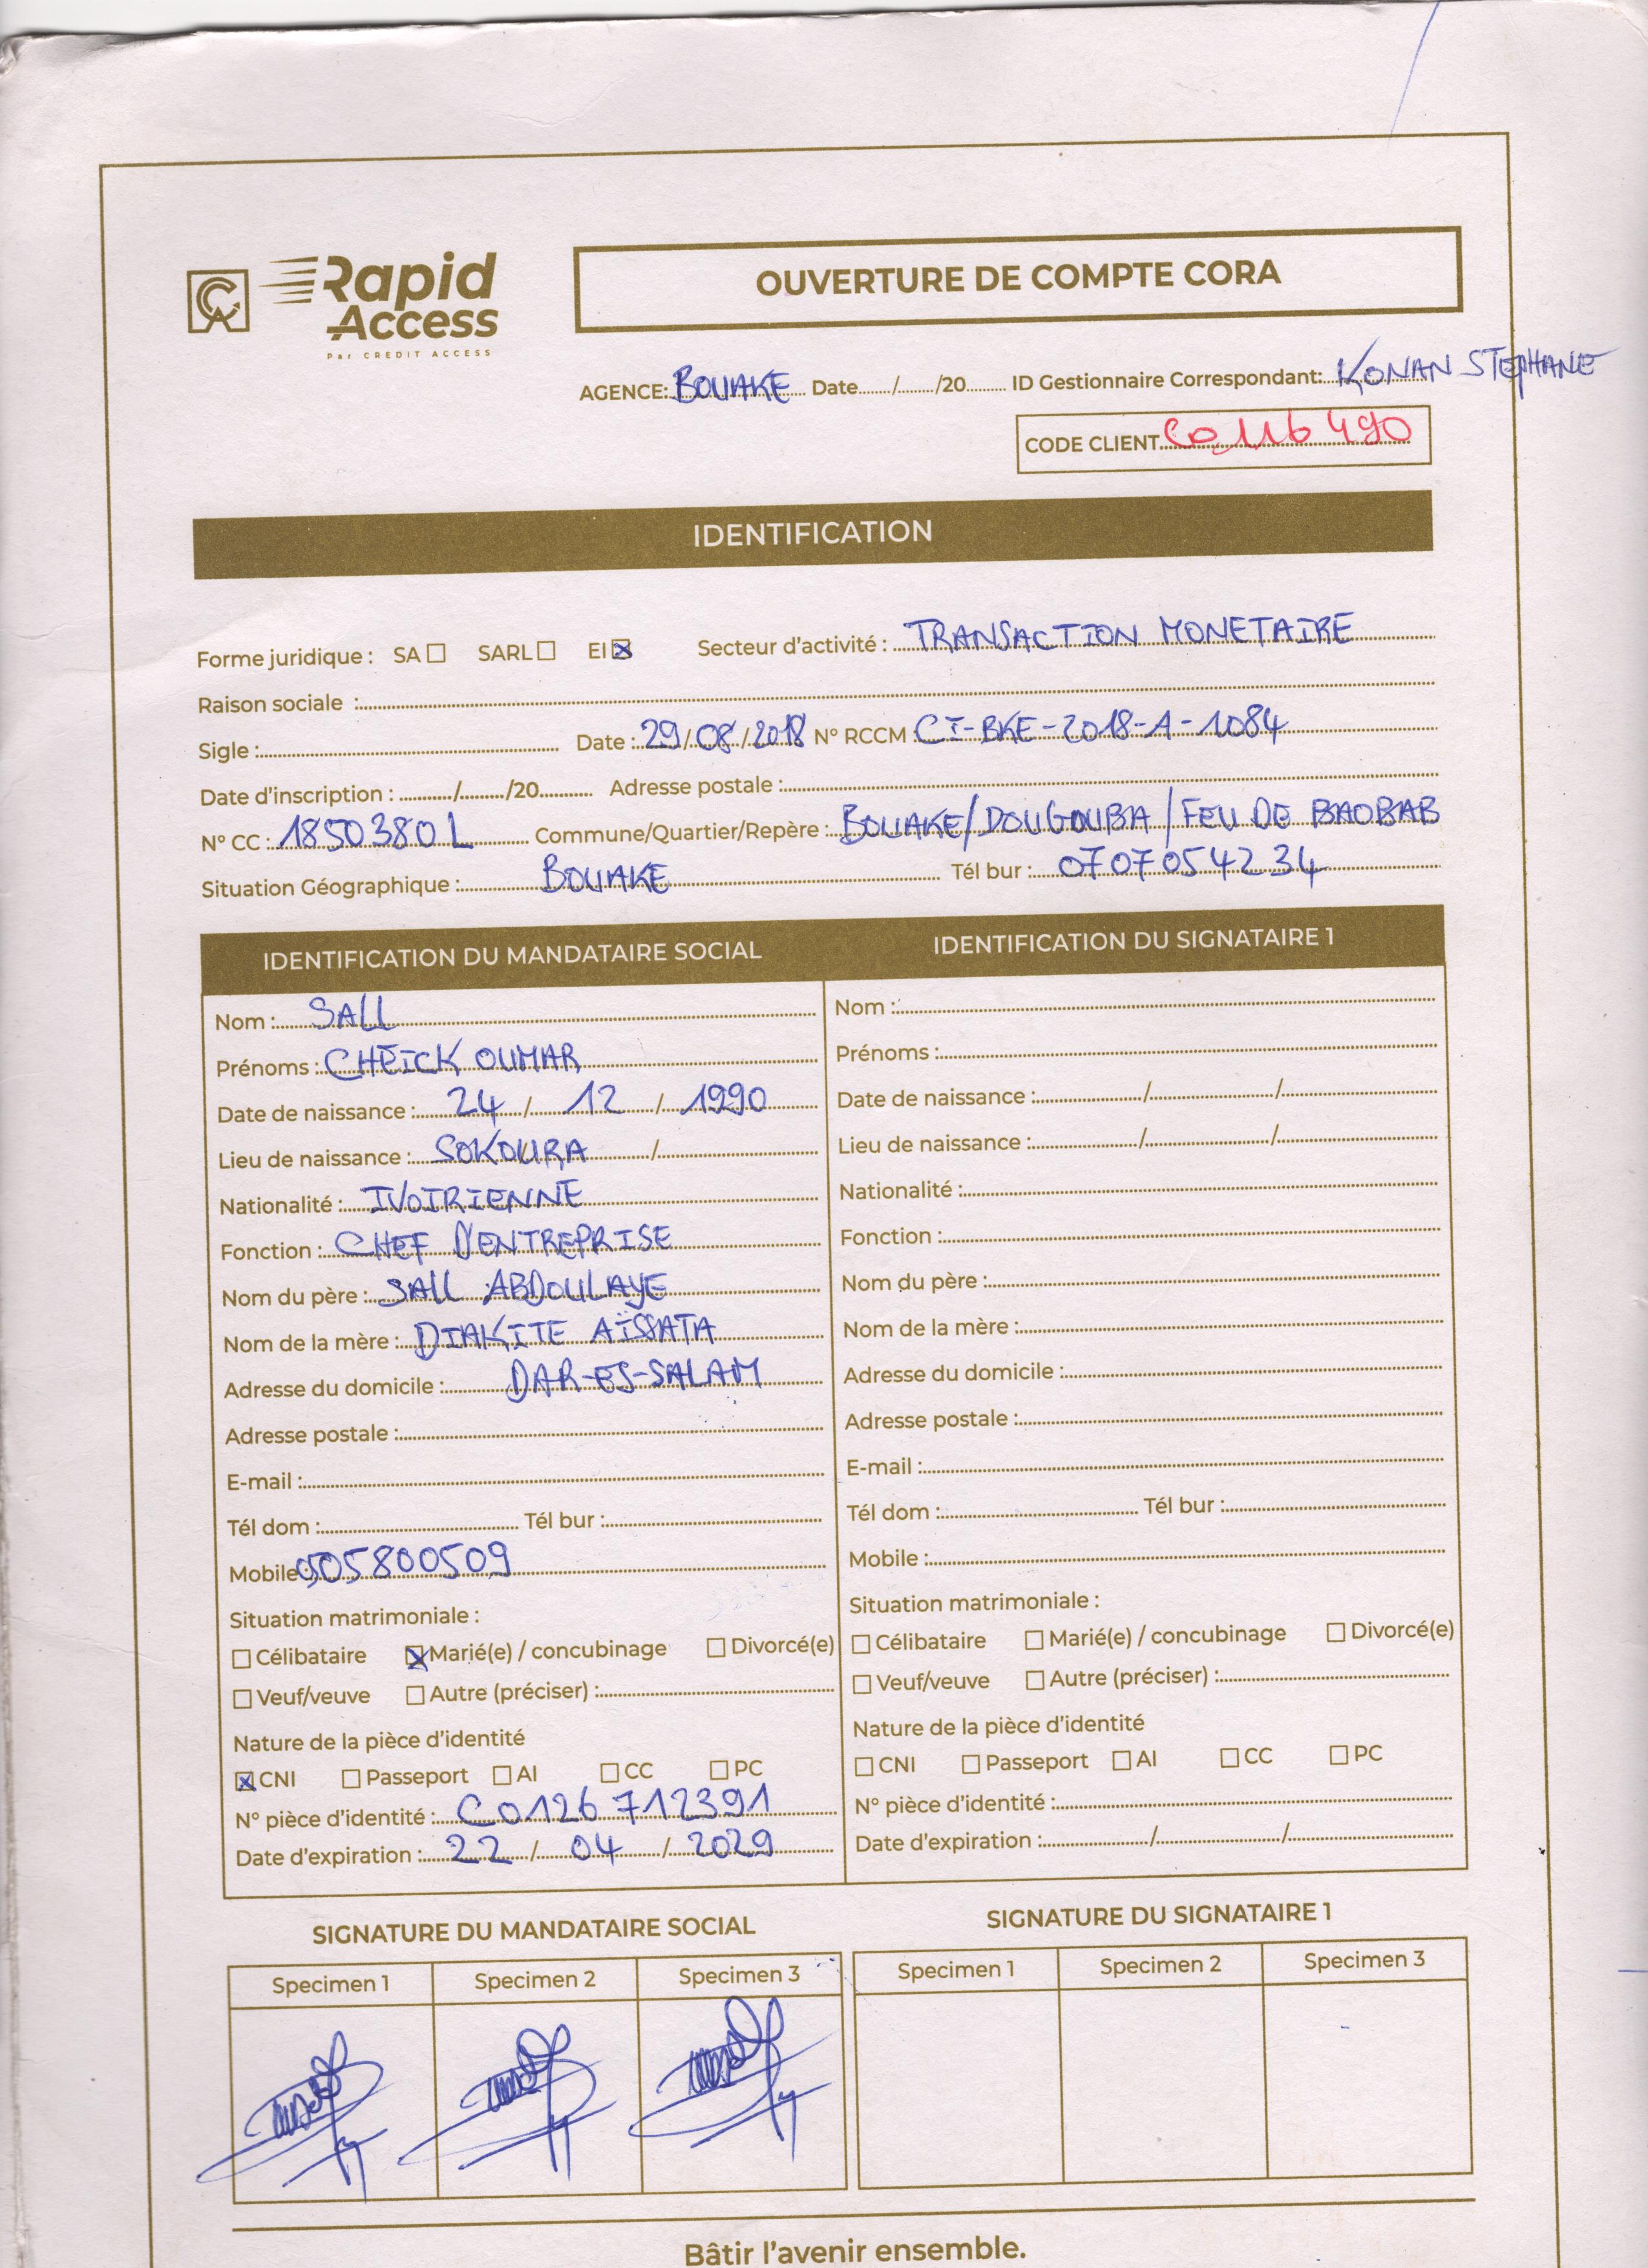 Rapid Access
Par CREDIT ACCESS
OUVERTURE DE COMPTE CORA
AGENCE: BOUAKE Date....../....../20...... ID Gestionnaire Correspondant: KONAN STEPHANE
CODE CLIENT C0116490
IDENTIFICATION
Forme juridique : SA ☐ SARL ☐ EI ☒ Secteur d'activité : TRANSACTION MONETAIRE
Raison sociale :
Sigle : Date : 29/08/2018 N° RCCM CI-BKE-2018-A-1084
Date d'inscription : ....../....../20...... Adresse postale :
N° CC : 1850380L Commune/Quartier/Repère : BOUAKE/DOUGOUBA/FEU DE BAOBAB
Situation Géographique : BOUAKE Tél bur : 0707054234
IDENTIFICATION DU MANDATAIRE SOCIAL
Nom : SALL
Prénoms : CHEICK OUMAR
Date de naissance : 24 / 12 / 1990
Lieu de naissance : SOKOURA /
Nationalité : IVOIRIENNE
Fonction : CHEF D'ENTREPRISE
Nom du père : SALL ABDOULAYE
Nom de la mère : DIAKITE AÏSSATA
Adresse du domicile : DAR-ES-SALAM
Adresse postale :
E-mail :
Tél dom : Tél bur :
Mobile : 0505800509
Situation matrimoniale :
☐ Célibataire ☒ Marié(e) / concubinage ☐ Divorcé(e)
☐ Veuf/veuve ☐ Autre (préciser) :
Nature de la pièce d'identité
☒ CNI ☐ Passeport ☐ AI ☐ CC ☐ PC
N° pièce d'identité : C0126712391
Date d'expiration : 22 / 04 / 2029
IDENTIFICATION DU SIGNATAIRE 1
Nom :
Prénoms :
Date de naissance : / /
Lieu de naissance : / /
Nationalité :
Fonction :
Nom du père :
Nom de la mère :
Adresse du domicile :
Adresse postale :
E-mail :
Tél dom : Tél bur :
Mobile :
Situation matrimoniale :
☐ Célibataire ☐ Marié(e) / concubinage ☐ Divorcé(e)
☐ Veuf/veuve ☐ Autre (préciser) :
Nature de la pièce d'identité
☐ CNI ☐ Passeport ☐ AI ☐ CC ☐ PC
N° pièce d'identité :
Date d'expiration : / /
SIGNATURE DU MANDATAIRE SOCIAL
Specimen 1 Specimen 2 Specimen 3
SIGNATURE DU SIGNATAIRE 1
Specimen 1 Specimen 2 Specimen 3
Bâtir l'avenir ensemble.